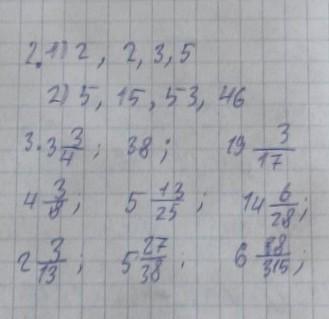 2. 1) 2, 2, 3, 5
2) 5, 15, 53, 46
3. 3 3/4; 38; 19 3/17
4 3/8; 5 13/25; 14 6/28;
2 3/13; 5 27/38. 6 18/315;